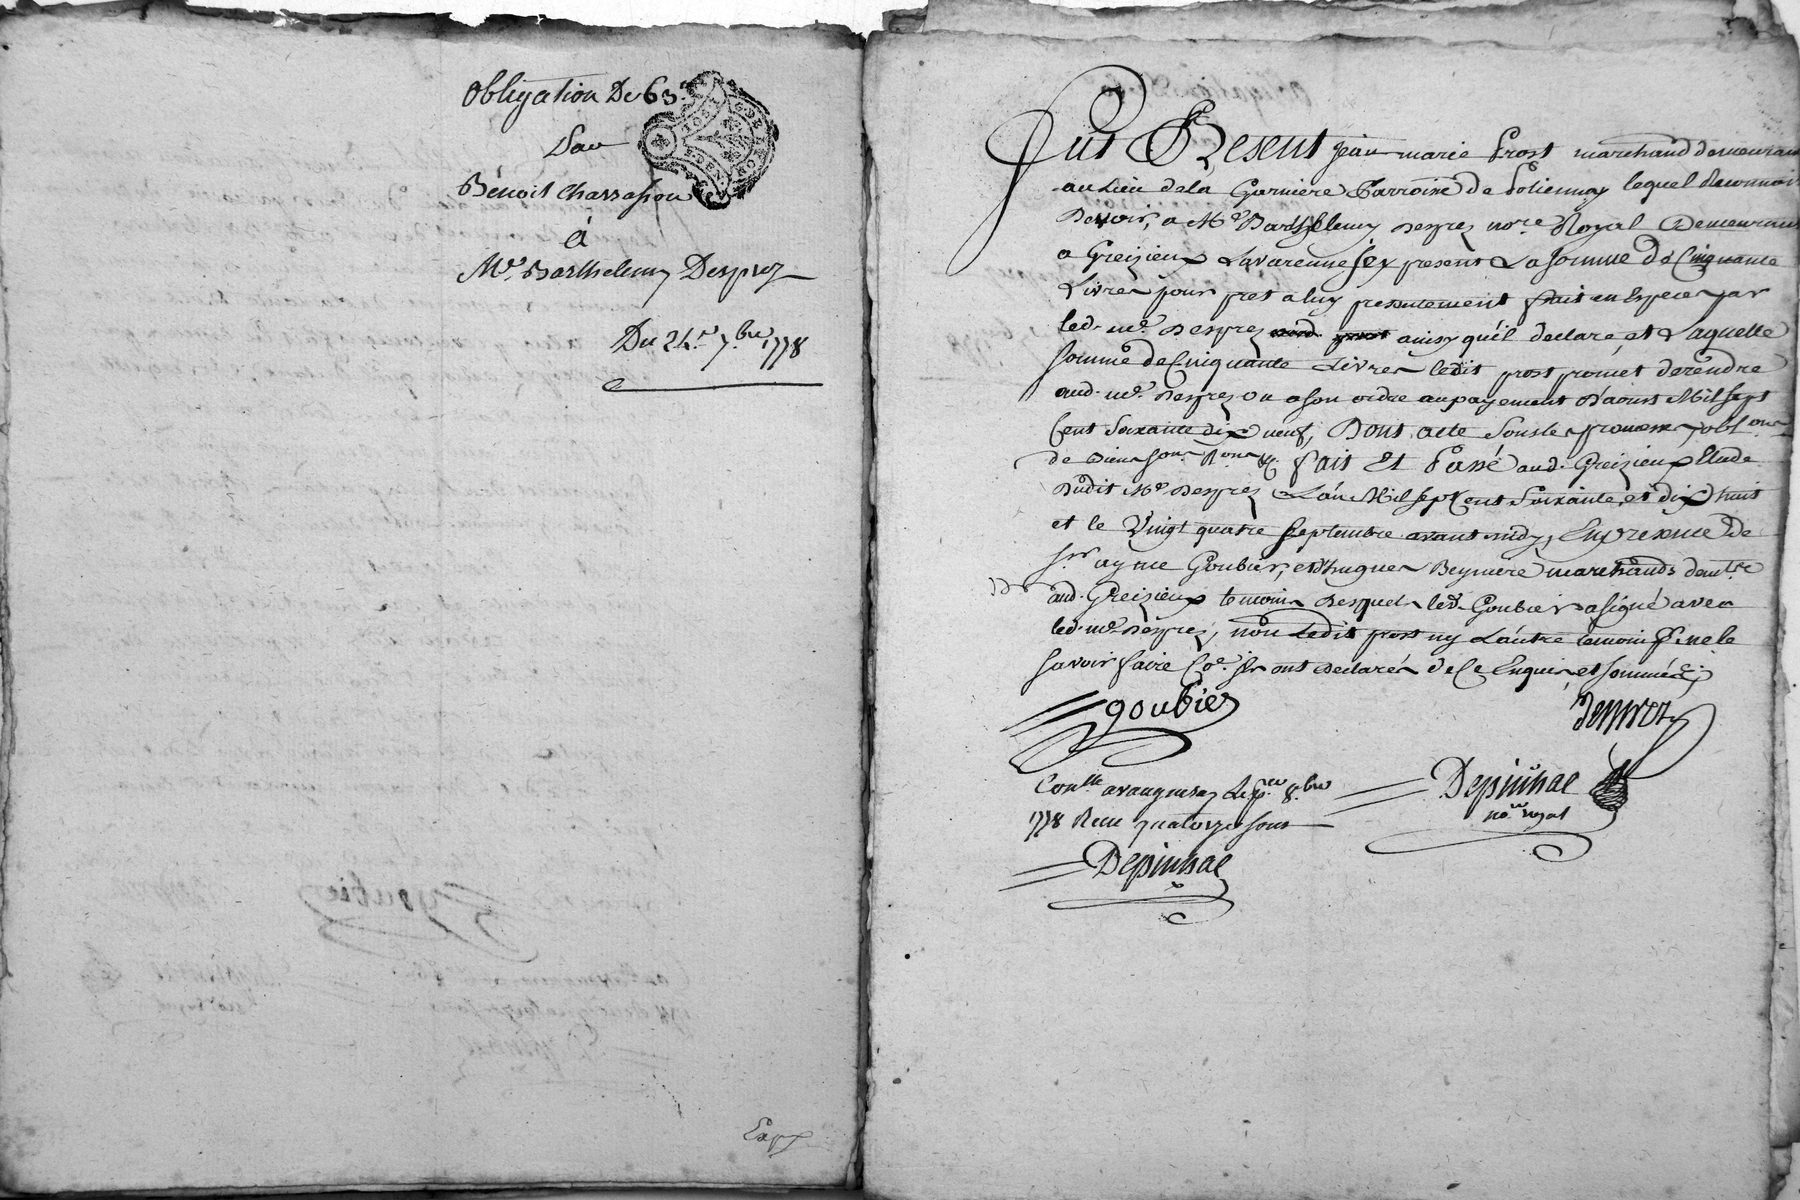 Obligation De 63#
Par
Bénoit Chassagnon
à
Me. Barthelemy Desprez
Du 24e. 7.bre 1778
Exp
Fut Présent Jean marie Prost marchand demeurant
au Lieu de la Garniere Parroisse de Poliennay lequel Reconnoit
Devoir, a Me. Barthelemy Desprez nore. Royal Demeurant
a Greizieux Lavarenne icy present La somme de Cinquante
Livres pour pret a luy presentement fait en Especes par
led. me. Desprez ainsy qu'il declare, et Laquelle
somme de Cinquante Livres ledit prost promet de rendre
aud. me. Desprez ou a son ordre au payement d'aoust Mil sept
Cent Soixante dix neuf, Dont acte sous les promesses, oblons.
de Biens Fait Et Passé aud. Greizieux Etude
Dudit Me. Desprez L'an Mil sept Cent Soixante et dix huit
et le Vingt quatre Septembre avant midy, En presence de
sr. ayme Goubier, et d'hugues Beyniere marchands demts.
aud. Greizieux temoins desquels led. Goubier a signé avec
led. me. Desprez, non Ledit prost ny L'autre temoin p. ne le
savoir faire Coe. ils ont Declarés de Ce Enquis et sommés
goubier
Desprez
Conlle a vaugneray Le per 8.bre
1778 Recu quatorze sous
Depiuhac
Depiuhac
nore. royal